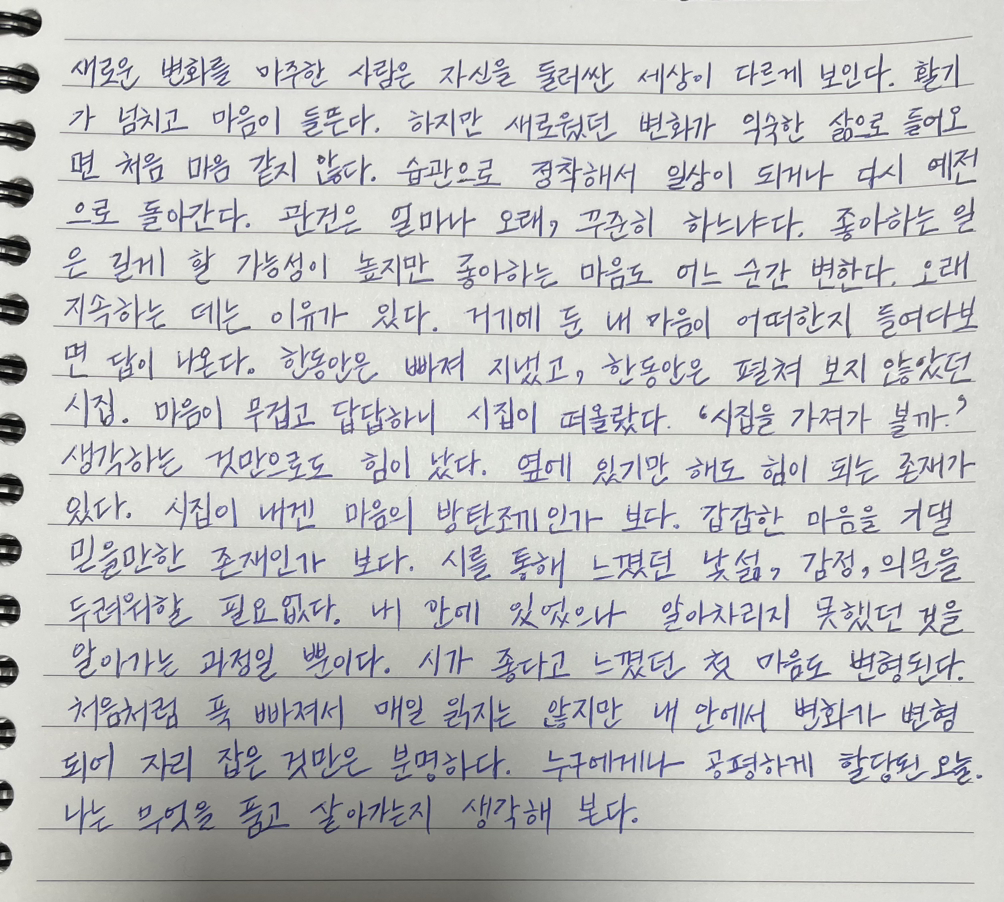 새로운 변화를 마주한 사람은 자신을 둘러싼 세상이 다르게 보인다. 활기
가 넘치고 마음이 들뜬다. 하지만 새로웠던 변화가 익숙한 삶으로 들어오
면 처음 마음 같지 않다. 습관으로 정착해서 일상이 되거나 다시 예전
으로 돌아간다. 관건은 얼마나 오래, 꾸준히 하느냐다. 좋아하는 일
은 길게 할 가능성이 높지만 좋아하는 마음도 어느 순간 변한다. 오래
지속하는 데는 이유가 있다. 거기에 둔 내 마음이 어떠한지 들여다보
면 답이 나온다. 한동안은 빠져 지냈고, 한동안은 펼쳐 보지 않았던
시집. 마음이 무겁고 답답하니 시집이 떠올랐다. ‘시집을 가져가 볼까.’
생각하는 것만으로도 힘이 났다. 옆에 있기만 해도 힘이 되는 존재가
있다. 시집이 내겐 마음의 방탄조끼인가 보다. 갑갑한 마음을 기댈
믿을만한 존재인가 보다. 시를 통해 느꼈던 낯섦, 감정, 의문을
두려워할 필요없다. 내 안에 있었으나 알아차리지 못했던 것을
알아가는 과정일 뿐이다. 시가 좋다고 느꼈던 첫 마음도 변형된다.
처음처럼 푹 빠져서 매일 읽지는 않지만 내 안에서 변화가 변형
되어 자리 잡은 것만은 분명하다. 누구에게나 공평하게 할당된 오늘.
나는 무엇을 품고 살아가는지 생각해 본다.